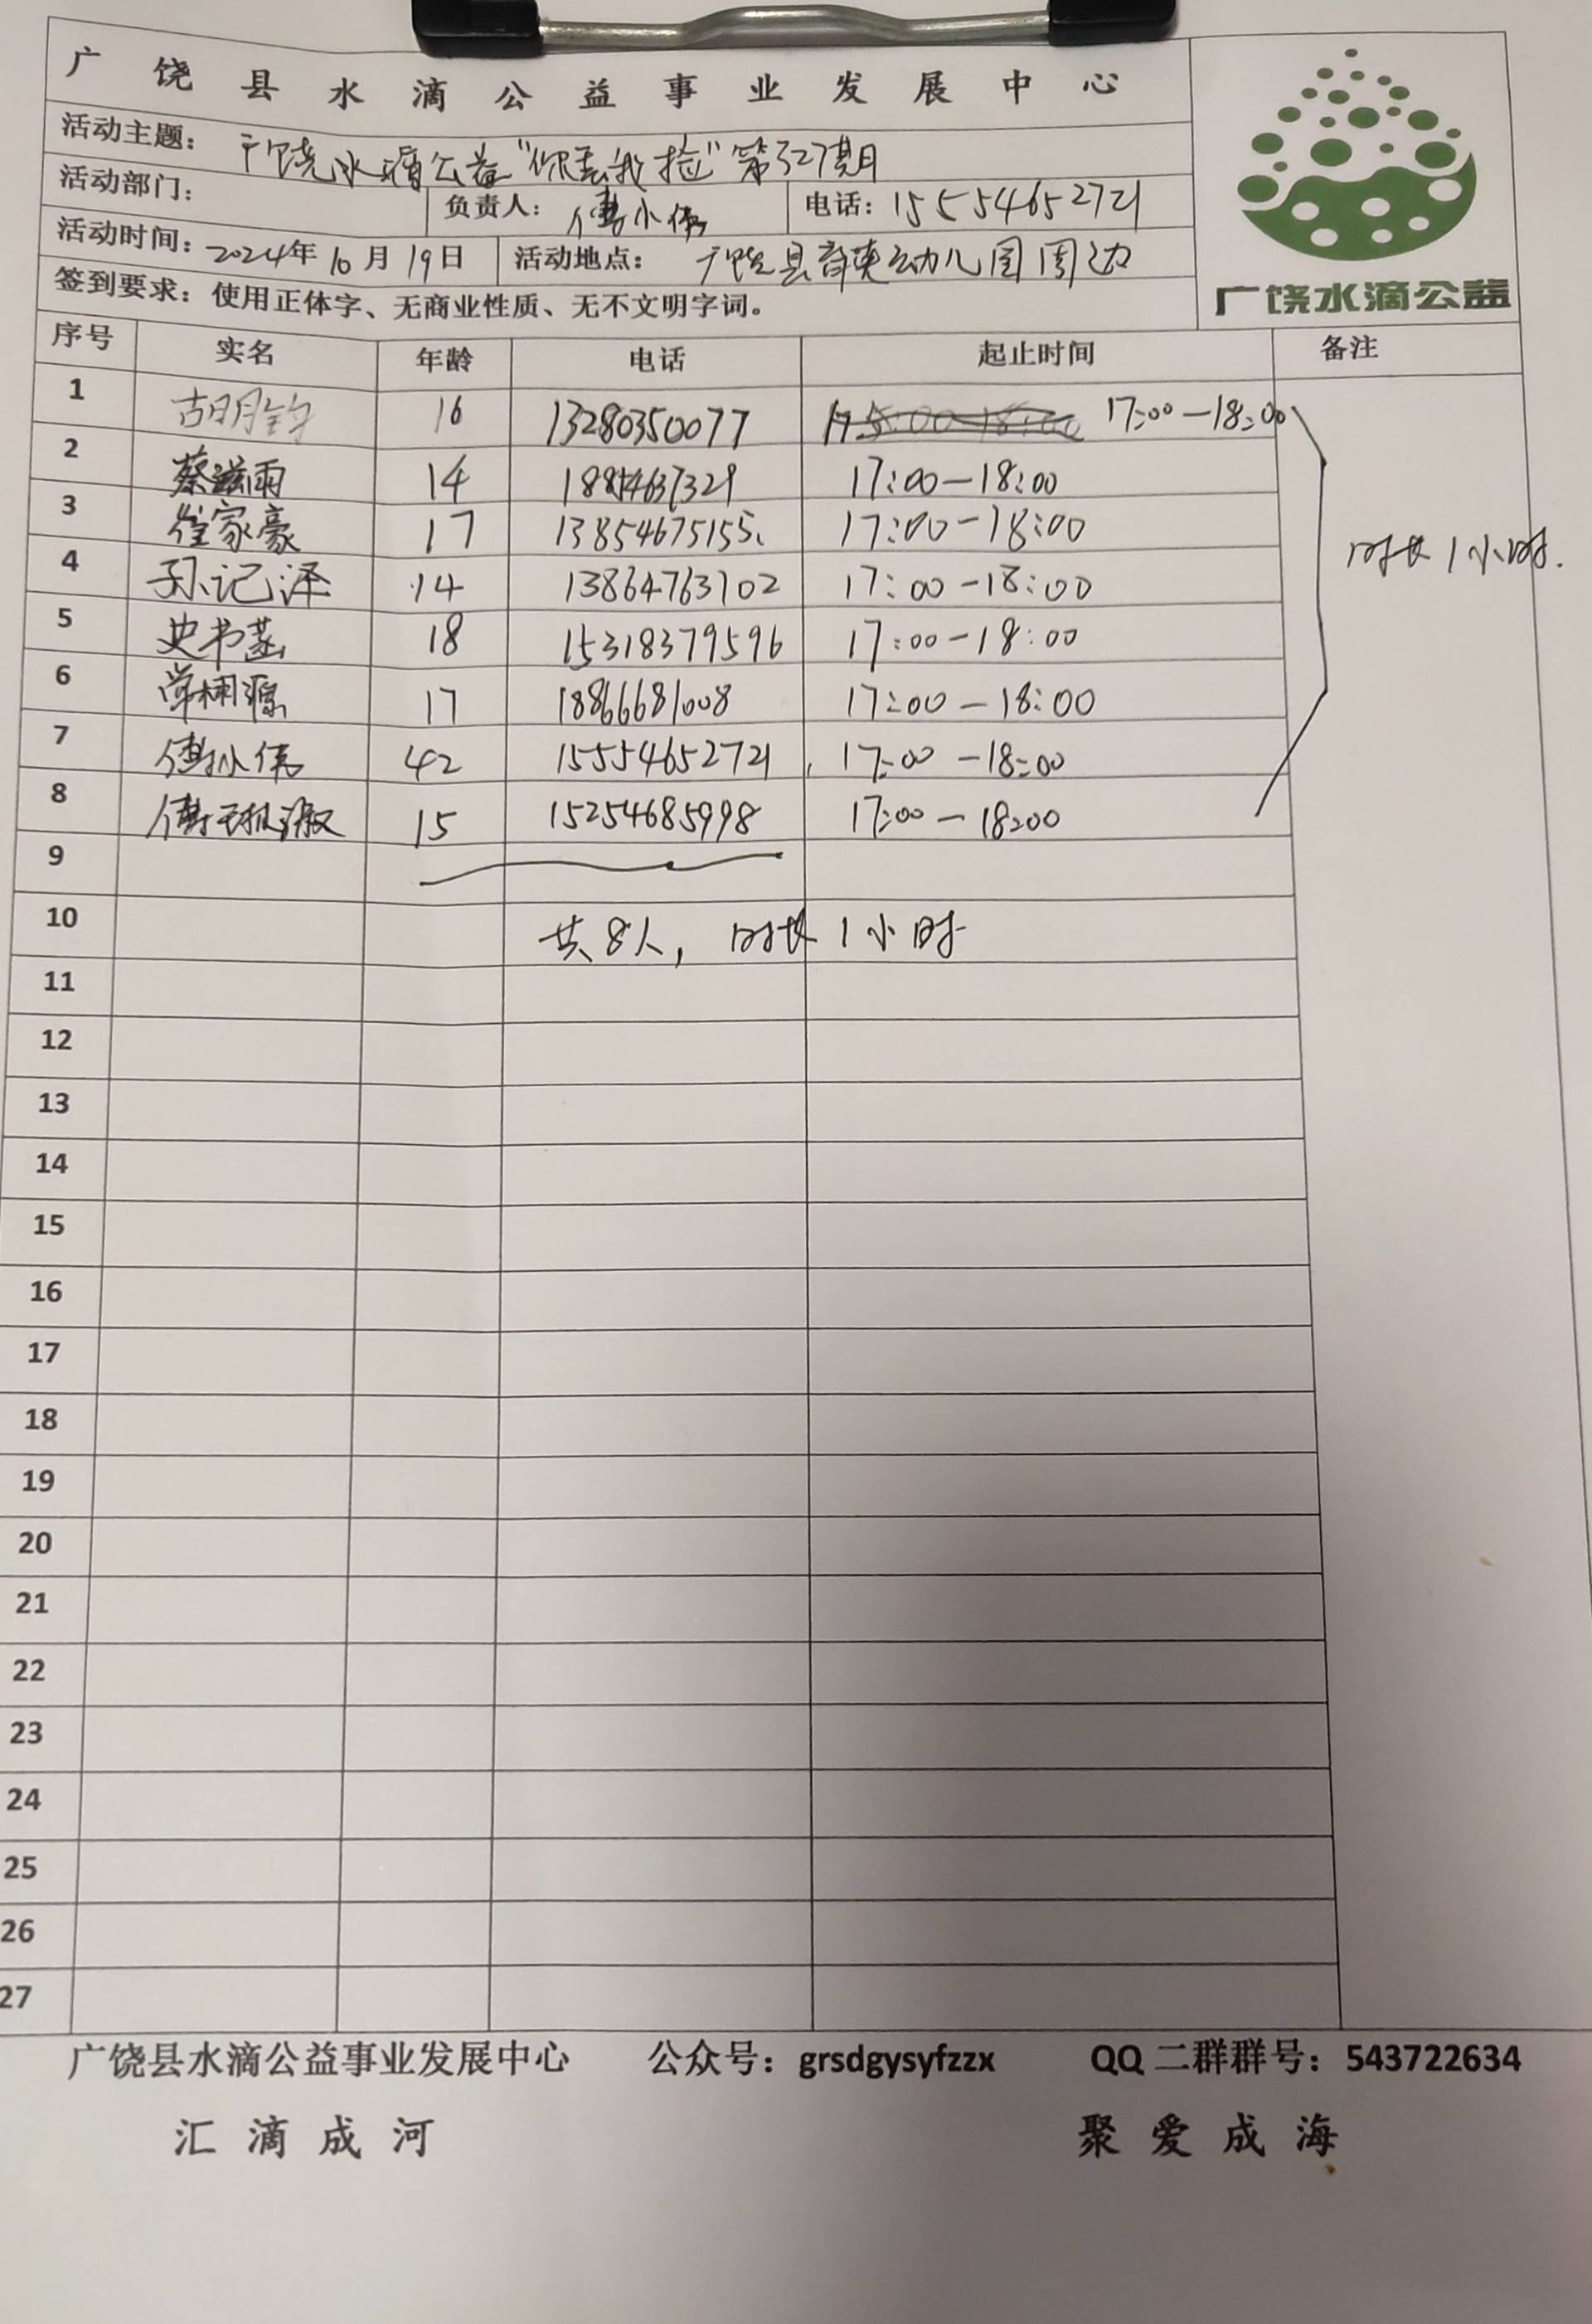 广饶县水滴公益事业发展中心
活动主题：广饶水滴公益"你丢我捡"第327期
活动部门： 负责人：傅小伟 电话：15554652721
活动时间：2024年10月19日 活动地点：广饶县育英幼儿园周边
签到要求：使用正体字、无商业性质、无不文明字词。
广饶水滴公益
序号 实名 年龄 电话 起止时间 备注
1 胡明钧 16 13280350077 17:00-18:00
2 蔡滋雨 14 18854637329 17:00-18:00
3 崔家豪 17 13854675155 17:00-18:00
时长1小时.
4 孙记泽 14 13864763702 17:00-18:00
5 史书菡 18 15318379596 17:00-18:00
6 常栩源 17 18866681008 17:00-18:00
7 傅小伟 42 15554652721 17:00-18:00
8 傅 15 15254685998 17:00-18:00
9
10 共8人，时长1小时
11
12
13
14
15
16
17
18
19
20
21
22
23
24
25
26
27
广饶县水滴公益事业发展中心 公众号：grsdgysyfzzx QQ二群群号：543722634
汇滴成河 聚爱成海